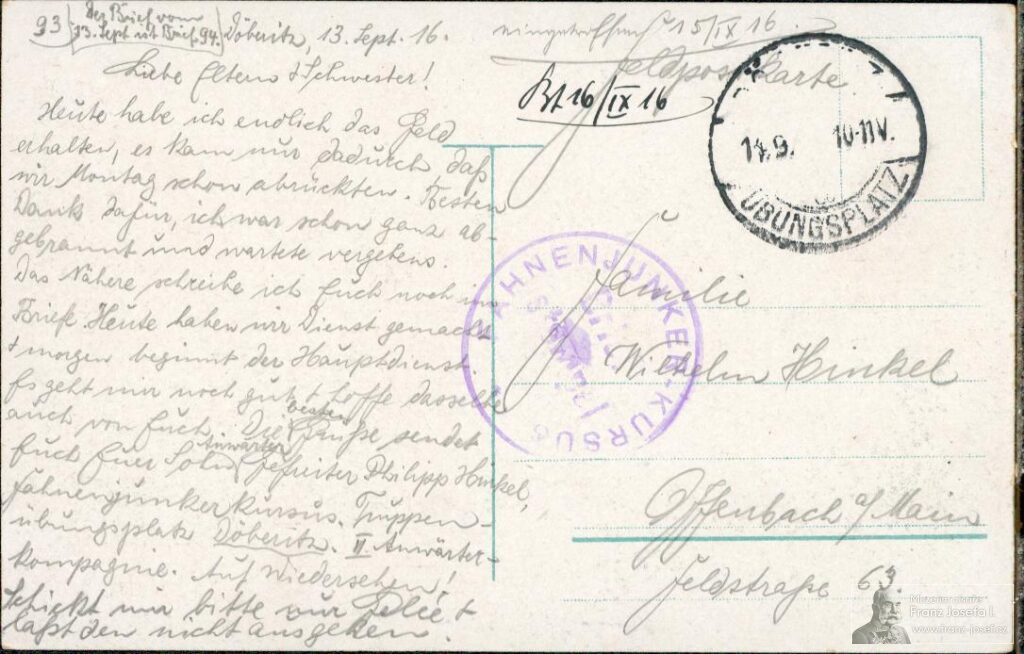 93) (Der Brief vom
13. Sept. ist Brief 94.) Döberitz, 13. Sept. 16.
Liebe Eltern & Schwester!
Heute habe ich endlich das Geld
erhalten, es kam nur dadurch, daß
wir Montag schon abrückten. Besten
Dank dafür, ich war schon ganz ab-
gebrannt und wartete vergebens.
Das Nähere schreibe ich Euch noch im
Briefe. Heute haben wir Dienst gemacht
& morgen beginnt der Hauptdienst.
Es geht mir noch gut & hoffe dasselbe
auch von Euch. Die besten Grüße sendet
Euch Euer Sohn Anwärter Gefreiter Philipp Hinkel,
Fahnenjunkerkursus. Truppen-
übungsplatz Döberitz. II. Anwärter-
kompagnie. Auf Wiedersehen!
Schickt mir bitte nur &
laßt den nicht ausgehen.
eingetroffen 15/IX 16
Feldpostkarte
Bt 16/IX 16
14.9. 10-11V.
ÜBUNGSPLATZ
FAHNENJUNKER-KURSUS
Familie
Wilhelm Hinkel
Offenbach a/Main
Feldstraße 63.
Muzeum císaře
Franz Josefa I.
www.franz-josef.cz